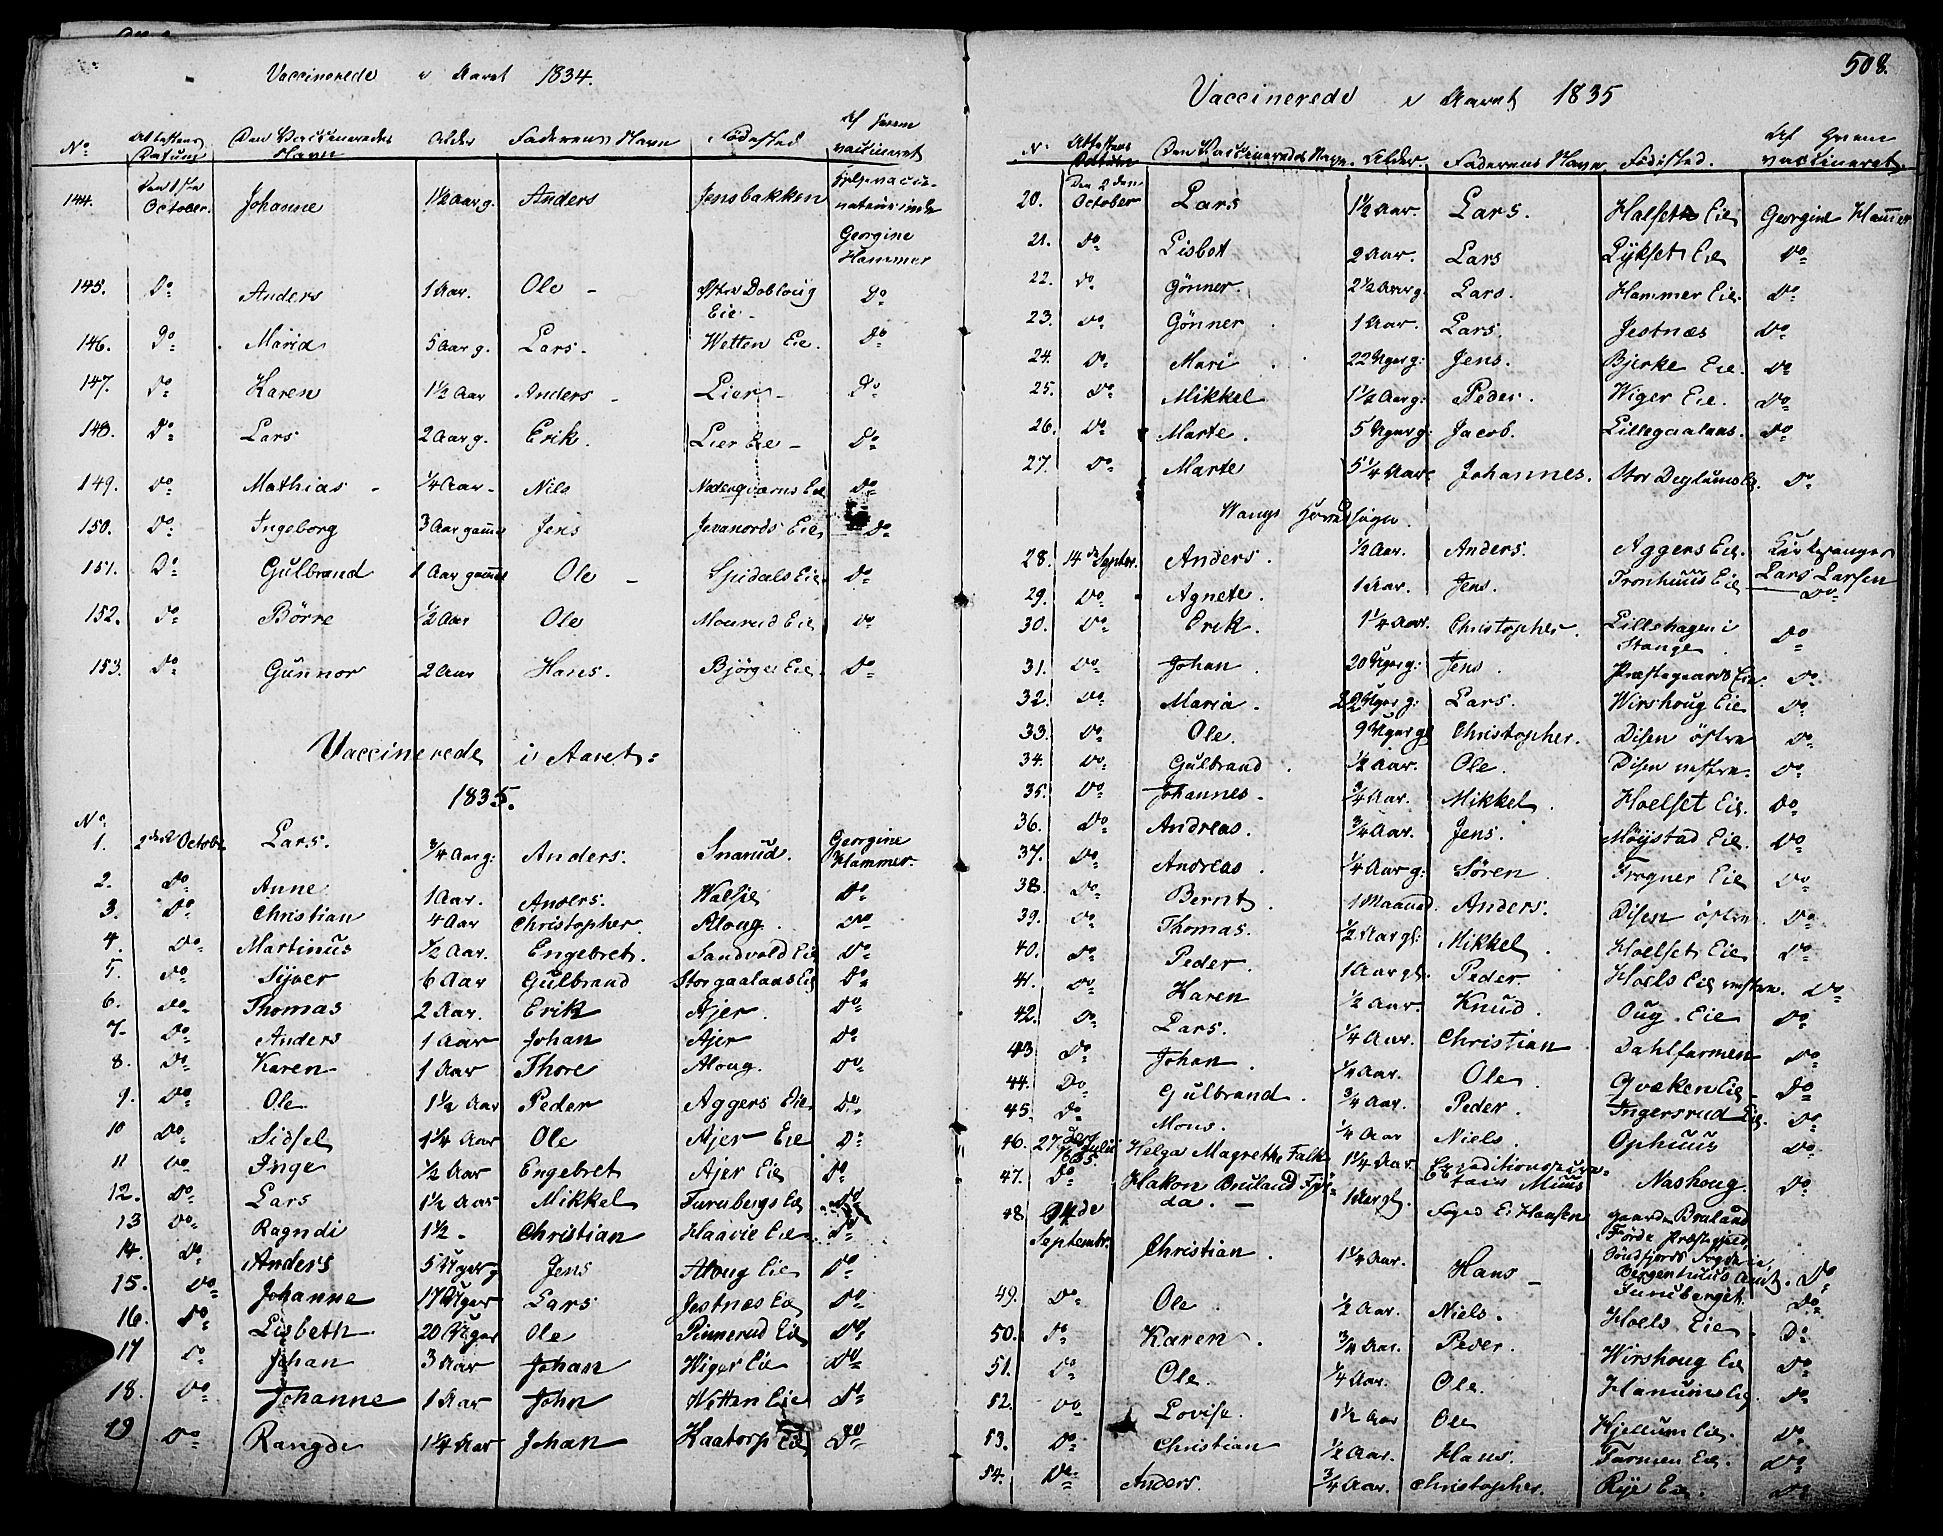 Vaccinerede i Aaret 1834.
No Attestens Datum Den Vaccineredes Navn Alder Faderens Navn Fødested Af hvem vaccineret
144. Den 1ste October. Johanne 1½ Aar g. Anders Jensbakken Georgine Hammer
145. Do Anders 1 Aar. Ole Stor Dobloug Eie. Do
146. Do Maria 5 Aar g. Lars. Wetten Eie. Do
147. Do Karen 1½ Aar Anders Lier Do
148. Do Lars 2 Aar g. Erik. Lier Eie Do
149. Do Mathias ¼ Aar Nils Nederqværns Eie Do
150. Do Ingeborg 3 Aar gammel Jens Jevanords Eie Do
151. Do Gulbrand 1 Aar gammel Ole Spidals Eie Do
152. Do Börre ½ Aar Ole Monrud Eie Do
153. Do Gunnor 2 Aar Hans. Bjørge Eie Do
Vaccinerede i Aaret:
1835.
No
1. 2den October Lars. ¾ Aar g: Anders. Snarud. Georgine Hammer.
2. Do Anne 1 Aar. Anders. Do
3. Do Christian 4 Aar Christopher. Aloug. Do
4. Do Martinus ½ Aar. Engebret. Sandvold Eie Do
5. Do Syver 6 Aar Gulbrand Storgaalaas Eie Do
6. Do Thomas 2 Aar. Erik Ajer. Do
7. Do Anders 1 Aar Johan Ajer Do
8. Do Karen 1 Aar Thore Aloug. Do
9. Do Ole 1½ Aar Peder Aggers Eie Do
10 Do Sidsel 1¼ Aar Ole Ajer Eie Do
11 Do Inge ½ Aar Engebret Ajer Eie Do
12. Do Lars 1½ Aar Mikkel Furubergs Eie Do
13 Do Ragndi 1½ Christian Haavie Eie Do
14. Do Anders 5 Uger g Jens Aloug Eie Do
15. Do Johanne 17 Uger Lars Jestnes Eie Do
16. Do Lisbeth 20 Uger Ole Pinnerud Eie Do
17 Do Johan 3 Aar Johan Wiger Eie Do
18. Do Johanne 1 Aar John Wetten Eie Do
19 Do Rangdi 1¼ Aar Johan Kaatorp Eie Do
508.
Vaccinerede i Aaret 1835
No Attestens Datum Den Vaccineredes Navn. Alder. Faderens Navn. Fødested. Af Hvem vaccineret.
20. Den 2den October Lars 1½ Aar. Lars. Hoelset Eie Georgine Hammer
21. Do Lisbet 2 Aar. Lars Lykset Eie Do
22. Do Gönner 2½ Aar g Lars. Hammer Eie. Do
23. Do Gönner 1 Aar. Lars. Jestnæs Do
24. Do Mari 22 Uger g: Jens. Bjerke Eie. Do
25. Do Mikkel 1½ Aar g: Peder. Wiger Eie. Do
26. Do Marte. 5 Uger g: Jacob. Lillegaalaas. Do
27. Do Marte 5¼ Aar Johannes. Stor Deglums E. Do
Wangs Hovedsogn.
28. 14de Septbr. Anders. ½ Aar. Anders. Aggers Eie. Kirkesanger Lars Larsen
29. Do Agnete. 1 Aar. Jens. Tronhuus Eie Do
30. Do Erik. 1¼ Aar. Christopher. Lillehagen i Stange Do
31. Do Johan 20 Uger g: Jens. Præstegaards Eie. Do
32. Do Maria. 22 Uger g: Lars. Wirshoug Eie Do
33. Do Ole. 9 Uger g Christopher. Disen østre Do
34. Do Gulbrand ½ Aar. Ole. Disen vestre. Do
35. Do Johannes. ¾ Aar. Mikkel. Hoelset Eie. Do
36. Do Andreas. ¾ Aar. Jens. Møystad Eie. Do
37. Do Andreas ¼ Aar g: Søren Frogner Eie Do
38. Do Bernt. 1 Maaned. Anders. Disen østre. Do
39. Do Thomas. ½ Aar gl: Mikkel. Hoelset Eie Do
40. Do Peder 1 Aar gl. Peder. Hoels Eie vestre. Do
41. Do Karen ½ Aar. Knud. Oug Eie Do
42. Do Lars. ¼ Aar. Christian Dahlfarmen Do
43 Do Johan. ¼ Aar. Ole. Qvæken Eie Do
44. Do Gulbrand. ¾ Aar. Peder. Ingersrud Eie. Do
45. Do Mons. ¼ Aar Niels. Ophuus Do
46. 27de Juli Helga Magrethe Falk 1¼ Aar. Muus Nashoug. Do
47. Do Hakon Bruland Tyrida. 1 Aar gl. Foged E. Hansen gaarden Bruland Førde Præstegjeld, Søndfjords Fogderie, Bergenhuus Amt. Do
48. 14de Septembr. Christian. 1¼ Aar. Hans Furuberget. Do
49. Do Ole ½ Aar. Niels. Hoels Eie. Do
50. Do Karen. ¾ Aar. Peder. Wirshoug Eie Do
51. Do Ole. ¼ Aar. Ole. Hanums Eie. Do
52. Do Lovise. 1½ Aar Ole Hjellum Eie. Do
53. Do Christian ½ Aar. Hans. Farmen Eie. Do
54. Do Anders. ¾ Aar. Christopher. Rye Eie. Do